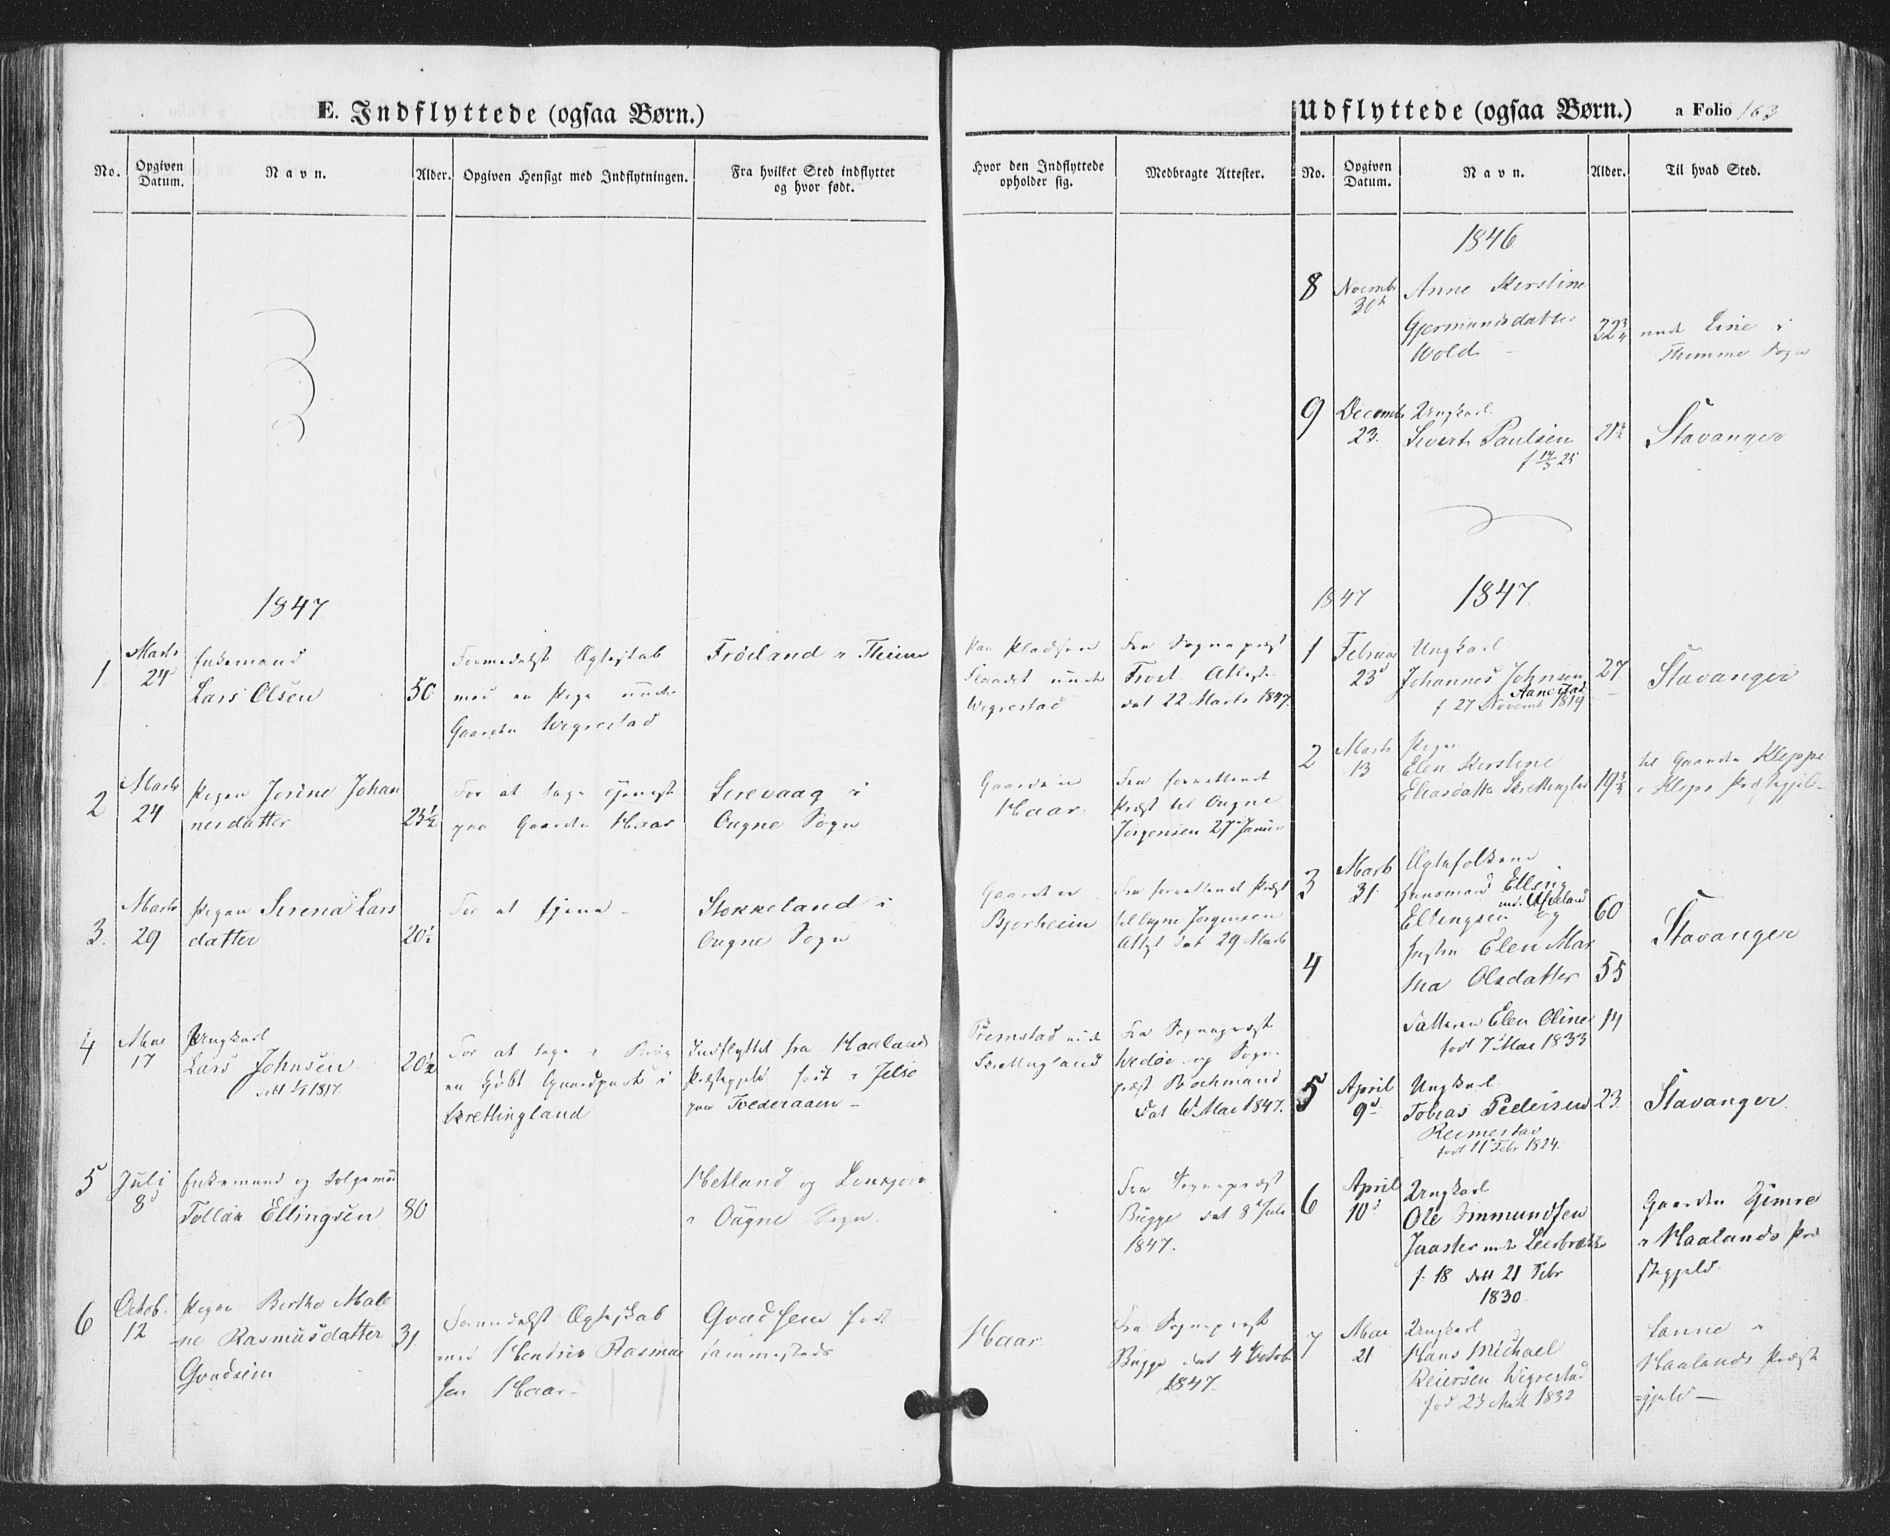 E. Indflyttede (ogsaa Børn.)
No.
Opgiven
Datum.
Navn.
Alder.
Opgiven Hensigt med Indflytningen.
Fra hvilket Sted indflyttet
og hvor født.
Hvor den Indflyttede
opholder sig.
Medbragte Attester.
1847
1
Marts
24
Enkemand
Lars Olsen
50
Formedelst Ægteskab
med en Pige under
Gaarden Wigrestad
Frøiland i Thime
Paa Pladsen
under
Wigrestad
Fra Sognepræst
Attest
dat 22 Marts 1847.
2
Marts
24
Pigen Josine Johan
nesdatter
23½
For at tage Tjeneste
paa Gaarden Haar
Sirevaag i
Ougne Sogn
Gaarden
Haar.
Fra forrettende
Præst til Ougne
Jørgensen 27 Januar
3.
Marts
29
Pigen Serena Lars
datter
20½
For at tjene
Stokkeland i
Ougne Sogn
Gaarden
Bjorheim
Fra forrettende Præst
til Ougne Jørgensen
Attest dat 29 Marts
4
Mai
17
Ungkarl
Lars Johnsen
20½
For at tage i Brug
en kjøbt Gaardpart i
Skretlingland
Indflyttet fra Haalands
Præstegjeld født i Jelse
paa Tvederaaen
under
Skretlingland
Fra Sognepræst
og Sogne
præst Bochmand
dat Mai 1847.
5
Juli
8d
Enkemand og
Tollak Ellingsen
80
Hetland og
i Ougne Sogn.
Fra Sognepræst
Bugge dat 8d Juli
1847.
6
Octob.
12
Pigen Berthe Male
ne Rasmusdatter
Gvadsem
31.
Formedelst Ægteskab
med Hendrik Rasmus
sen Haar
Gvadsem født
sammesteds
Haar
Fra Sognepræst
Bugge dat 4 Octob.
1847.
Udflyttede (ogsaa Børn.)
a Folio 163
No.
Opgiven
Datum.
Navn.
Alder.
Til hvad Sted.
1846
8
Novemb
30te
Anne Kerstine
Gjermundsdatter
Wold
22¾
under Line i
Thimme Sogn
9
Decemb
23.
Ungkarl
Sivert Paulsen
f 14/3 25
21¾
Stavanger
1847
1847
1
Februar
23d
Ungkarl
Johannes Johnsen
Aanestad
f 27 Novemb 1819
27
Stavanger
2
Marts
13
Pigen
Elen Kerstine
Eliasdatter Skretlingland
19¾
til Gaarden Kleppe
i Kleps Præstegjeld
3
Marts
31
Ægtefolkene
Huusmand Elling
Ellingsen und. og
60
Stavanger
4
Hustru Elen Mar
tha Olsdatter
55
Datteren Elen Oline
født 7 Mai 1833
14
5
April
9d
Ungkarl
Tobias Pedersen
Reimestad
født 11 Febr 1824.
23
Stavanger
6
April
10d
Ungkarl
Ole Ommundsen
f. 18 døbt 21 Febr
1830
Gaarden Gimre
i Haalands Præ
stegjeld.
7
Mai
21
Ungkarl
Hans Michael
Reiersen Wigrestad
fød 23 1832
i
Haalands Præste
=gjeld